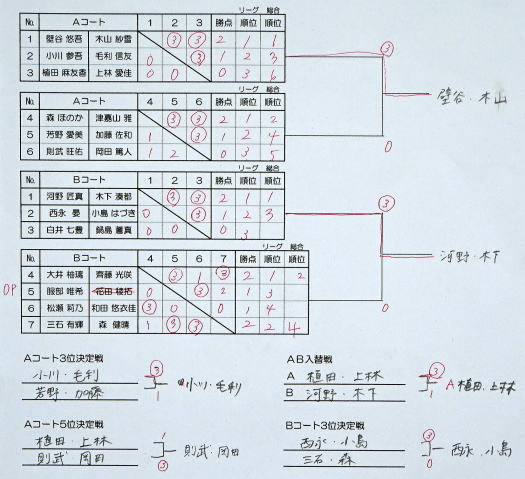 リーグ 総合
No. Aコート 1 2 3 勝点 順位 順位
1 壁谷 悠吾 木山 紗雪 ③ ③ 2 1 1
2 小川 参吾 毛利 信友 0 ③ 1 2 3
3 植田 麻友香 上林 愛佳 0 0 0 3 6
③
壁谷・木山
0
リーグ 総合
No. Aコート 4 5 6 勝点 順位 順位
4 森 ほのか 津嘉山 雅 ③ ③ 2 1 2
5 芳野 愛美 加藤 佐和 1 ③ 1 2 4
6 則武 旺佑 岡田 篤人 1 2 0 3 5
リーグ 総合
No. Bコート 1 2 3 勝点 順位 順位
1 河野 匠真 木下 湊都 ③ ③ 2 1 1
2 西永 晏 小島 はづき 0 ③ 1 2 3
3 白井 七豊 鍋島 薫真 0 0 0 3
③
河野・木下
0
リーグ 総合
No. Bコート 4 5 6 7 勝点 順位 順位
4 大井 柚璃 齊藤 光咲 ③ 1 ③ 2 1 2
OP 5 服部 唯希 0 ③ 2 1 3
6 松瀬 莉乃 和田 悠衣佳 ③ 0 0 1 4
7 三石 有輝 森 健晴 1 ③ ③ 2 2 4
Aコート3位決定戦
小川・毛利 ③
小川・毛利
芳野・加藤 1
AB入替戦
A 植田・上林 ③
A 植田・上林
B 河野・木下 1
Aコート5位決定戦
植田・上林 1
則武・岡田
則武・岡田 ③
Bコート3位決定戦
西永・小島 ③
西永・小島
三石・森 0